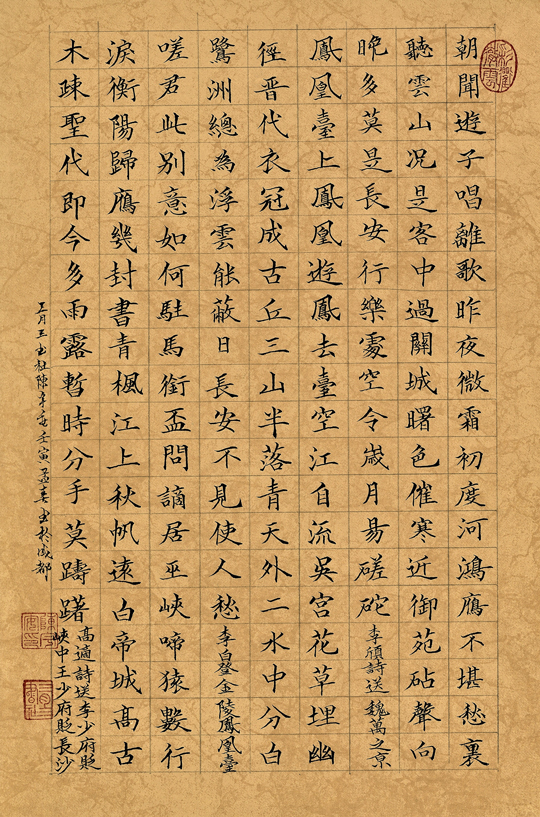 朝聞遊子唱離歌昨夜微霜初度河鴻鴈不堪愁裏
聽雲山況是客中過關城曙色催寒近御苑砧聲向
晚多莫是長安行樂處空令歲月易磋砣
李頎詩送魏萬之京
鳳凰臺上鳳凰遊鳳去臺空江自流吳宮花草埋幽
徑晋代衣冠成古丘三山半落青天外二水中分白
鷺洲總為浮雲能蔽日長安不見使人愁
李白登金陵鳳凰臺
嗟君此別意如何駐馬銜盃問謫居巫峽啼猿數行
淚衡陽歸鴈幾封書青楓江上秋帆遠白帝城高古
木疎聖代即今多雨露暫時分手莫躊躇
高適詩送李少府貶
峽中王少府貶長沙
壬寅孟書於成都